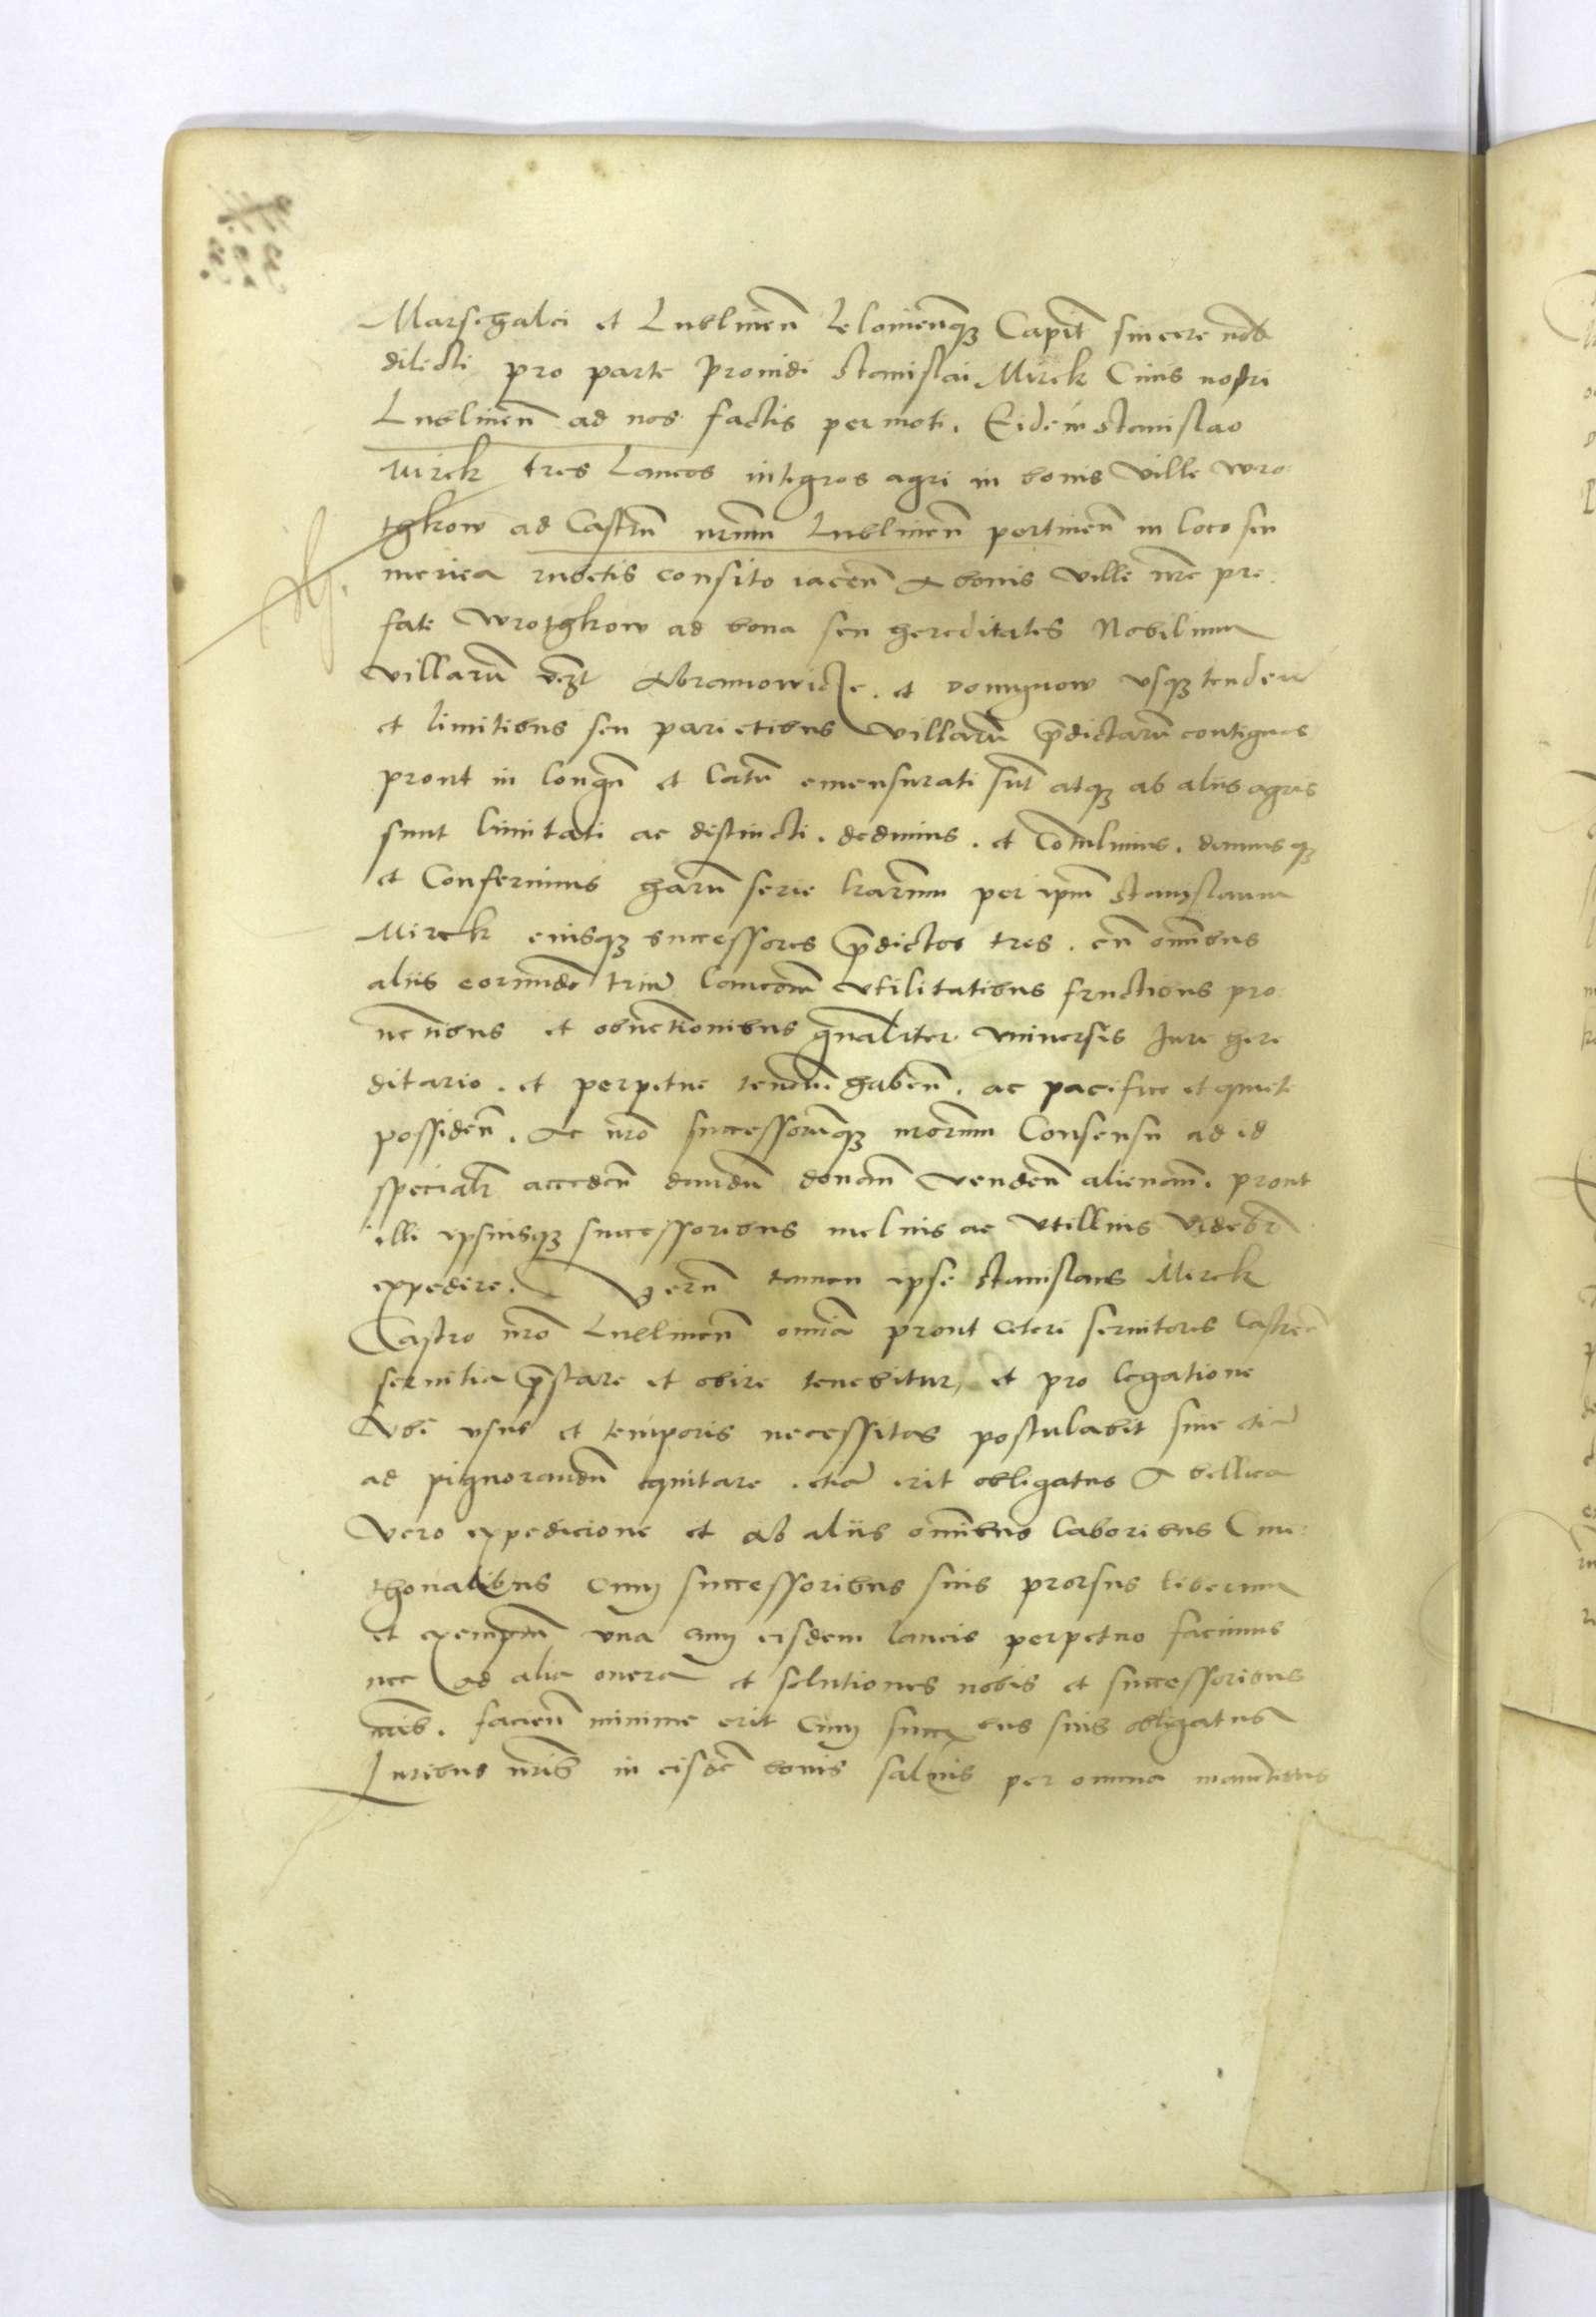 Marschalci et Lublinen̄ Leloviensiq₃ Capit̄ sincere nob̄
dilecti pro parte Providi Stanislai Mirek Civis nostri
Lublinen̄ ad nos factis permoti. Eidem Stanislao
Mirek tres Laneos integros agri in bonis Ville Wro
thkow ad Castrū nrūm Lublinen̄ pertinen̄ in loco seu
merica rubetis consito iacen̄ A bonis Ville nrē pre
fate Wrothkow ad bona seu hereditates Nobilium
villarū vz̄ Abramowicze. et Domynow usq₃ tenden̄
et limitibus seu parietibus villarū p̄dictarū contiguos
prout in longū et latū emensurati sūt atq₃ ab aliis agris
sunt limitati ac distincti. dedimus. et Cōtulimus. damusq₃
et Conferimus harū serie lrārum per ipm̄ Stanislaum
Mirek eiusq₃ successores p̄dictos tres. cū om̄ibus
aliis eorundē triū laneorū utilitatibus fructibus pro
ventibus et obventionibus gn̄aliter universis Jure here
ditario. et perpetue tenen̄ haben̄. ac pacifice et quiete
possiden̄. Ac nrō successorūq₃ nrōrum Consensu ad id
specialr̄ acceden̄ dandū donan̄ venden̄ alienan̄. prout
illi ipsiusq₃ successoribus melius ac utilius videbr̄
expedire. Verū tamen ipse Stanislaus Mirek
Castro nrō Lublinen̄ omīa prout ceteri servitores Castren̄
servitia p̄stare et obire tenebitur, et pro legatione
Ubi usus et temporis necessitas postulabit sive etiā
ad pignorandū equitare. etiā erit obligatus A bellica
vero expedicione et ab aliis om̄ibus laboribus Cme
thonalibus cum successoribus suis prorsus liberum
et exemptū una cum eisdem laneis perpetuo facimus
nec ad alia onera et solutiones nobis et successoribus
nrīs. facien̄ minime erit cum succ̄ribus suis obligatus
Juribus nrīs in eisdē bonis salvis per omnia manentibus